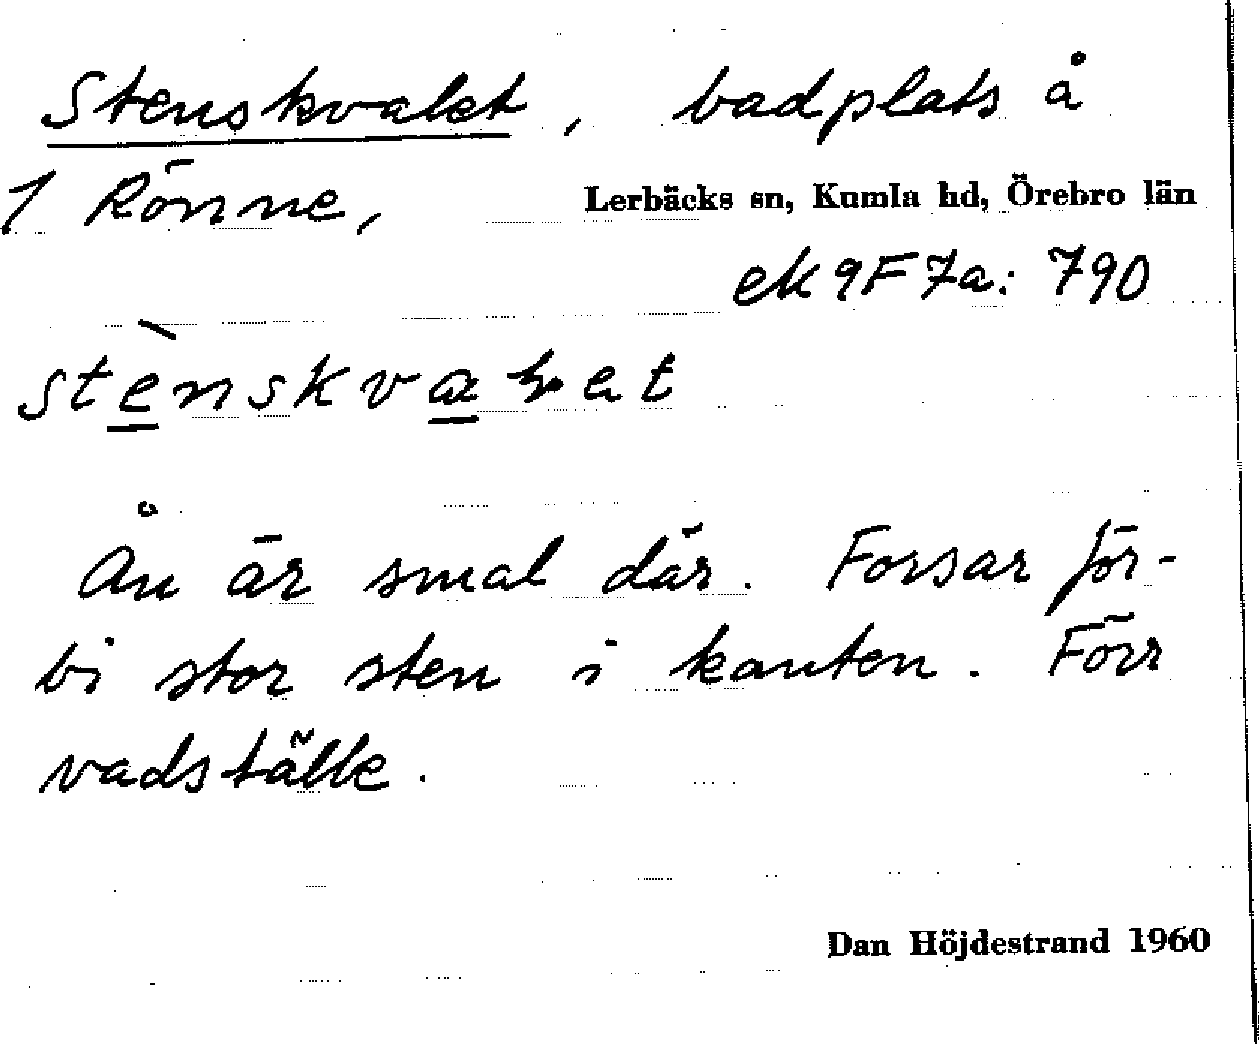 Stenskvalet, badplats å
1 Rönne, Lerbäcks sn, Kumla hd, Örebro län
ek 9F7a: 790
Ån är smal där. Forsar för-
bi stor sten i kanten. Förr
vadställe.
Dan Höjdestrand 1960